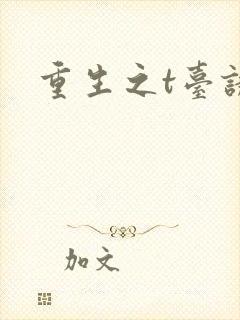 重生之t臺
加文